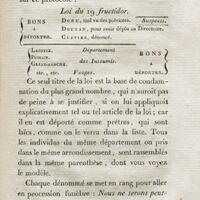 Loi du 19 fructidor.
BONS
À
DÉPORTER.
DORU, mal vu des policiers. Suspects.
DOUZAN, pour avoir déplu au Directoire.
CLAVIER, dénoncé.
Département
des Insoumis.
Vosges.
etc., etc.
BONS
À
DÉPORTER.
Ce seul titre de la loi est la base de condam-
nation du plus grand nombre, qui n'auroit pas
de peine à se justifier, si on lui appliquoit
explicitement tel ou tel article de la loi; car
il en est déporté comme prêtres, qui sont
laïcs, comme on le verra dans la liste. Tous
les individus du même département on pris
dans le même arrondissement, sont rassemblés
dans la même parenthèse, dont vous voyez
le modèle.
Chaque dénommé se met en rang pour aller
en procession funèbre : Nous ne serons peut-